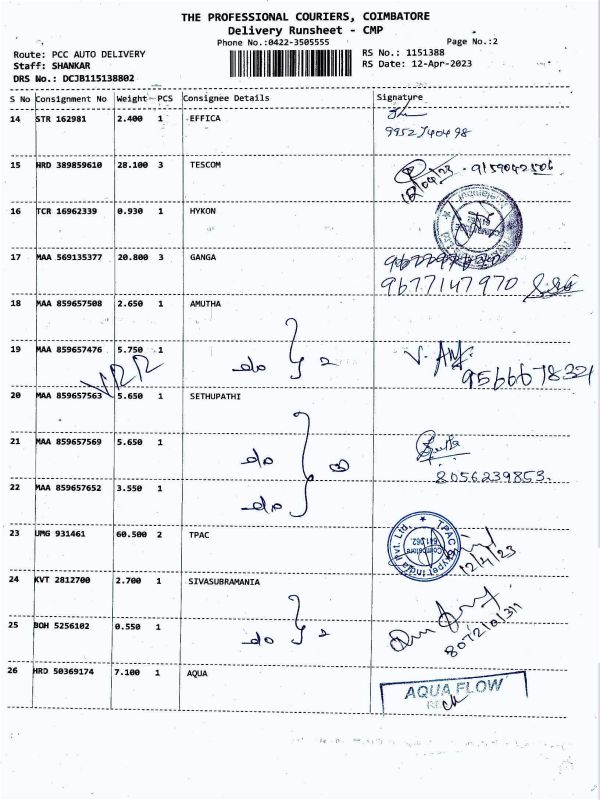 THE PROFESSIONAL COURIERS, COIMBATORE
Delivery Runsheet - CMP
Phone No.:0422-3505555 Page No.:2
Route: PCC AUTO DELIVERY RS No.: 1151388
Staff: SHANKAR RS Date: 12-Apr-2023
DRS No.: DCJB115138802
S No Consignment No Weight PCS Consignee Details Signature
14 STR 162981 2.400 1 EFFICA
15 HRD 389859610 28.100 3 TESCOM
16 TCR 16962339 0.930 1 HYKON
17 MAA 569135377 20.800 3 GANGA
9677147970
18 MAA 859657508 2.650 1 AMUTHA
19 MAA 859657476 5.750 1 do 2
VRR 9566678321
20 MAA 859657563 5.650 1 SETHUPATHI
21 MAA 859657569 5.650 1 do 3
8056239853.
22 MAA 859657652 3.550 1 do
23 UMG 931461 60.500 2 TPAC
12/4/23
24 KVT 2812700 2.700 1 SIVASUBRAMANIA
25 BOH 5256102 0.550 1 do 2
26 HRD 50369174 7.100 1 AQUA
AQUA FLOW